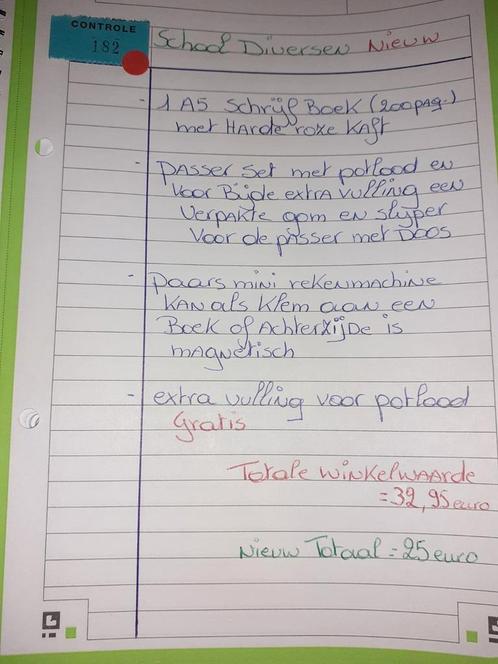 CONTROLE
182
School Diversen Nieuw
- 1 A5 Schrijf Boek (200pag.)
met Harde roze Kaft
- passer set met potlood en
voor Bijde extra vulling een
verpakte gom en slijper
voor de passer met Doos
- paars mini rekenmachine
KAN als Klem aan een
Boek of Achterzijde is
magnetisch
- extra vulling voor potlood
Gratis
Totale winkelwaarde
= 32,95 euro
Nieuw Totaal = 25 euro